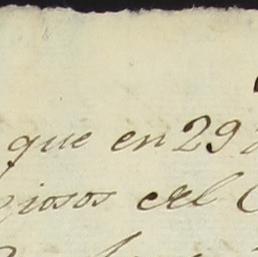 que en 29
giosos del